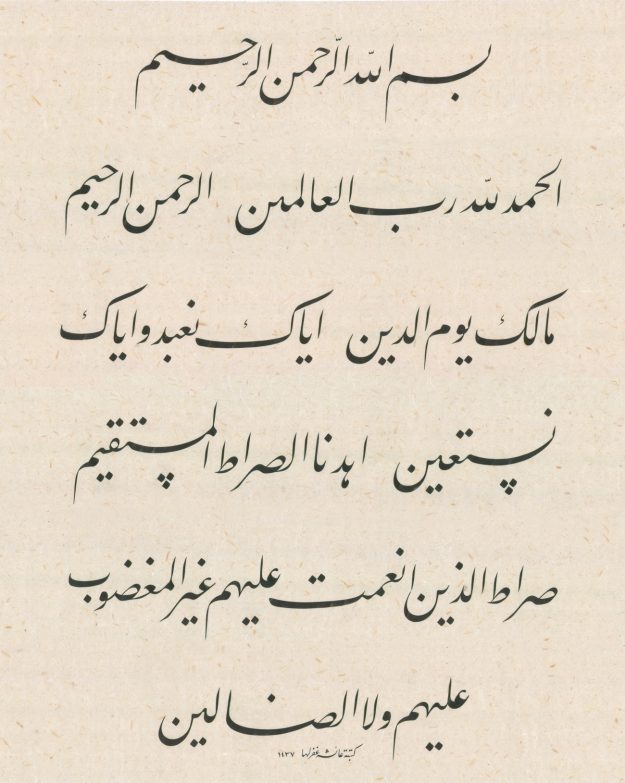 بسم الله الرحمن الرحيم
الحمد لله رب العالمين الرحمن الرحيم
مالك يوم الدين اياك نعبد واياك
نستعين اهدنا الصراط المستقيم
صراط الذين انعمت عليهم غير المغضوب
عليهم ولا الضالين
كتبته عائشة غفر لها ١٤٣٧